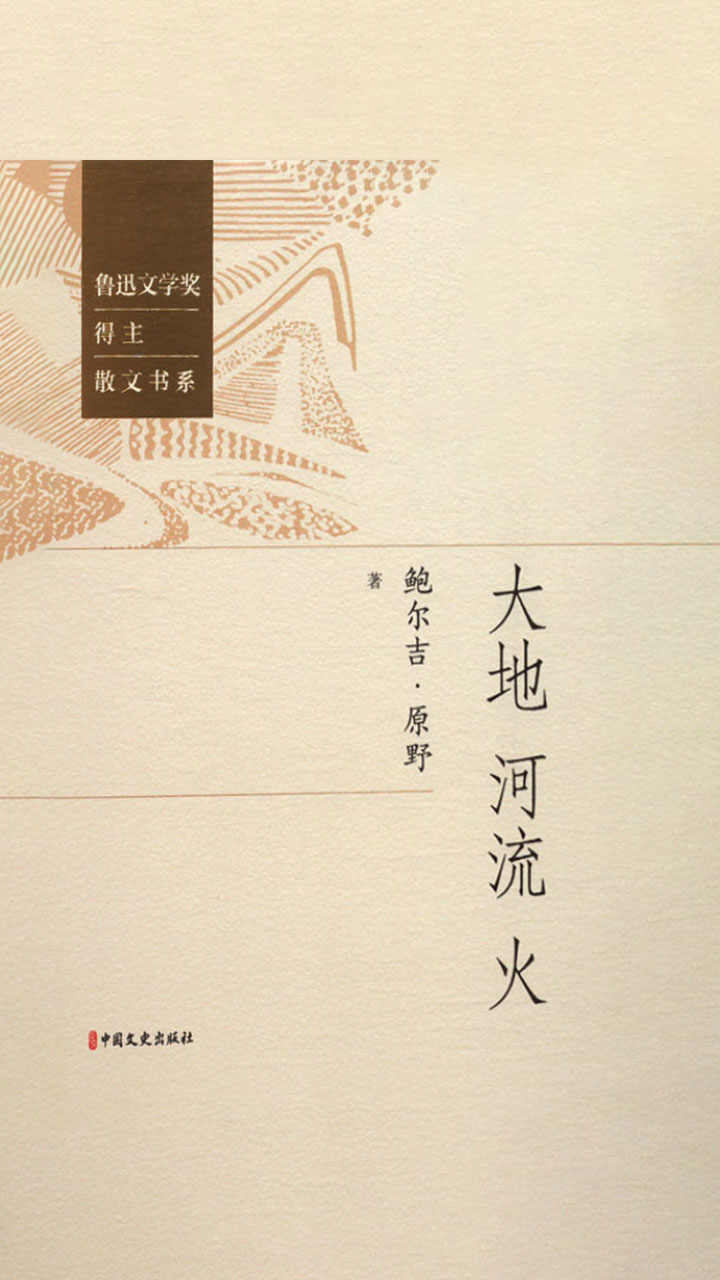 鲁迅文学奖
得主
散文书系
大地 河流 火
鲍尔吉·原野
著
中国文史出版社